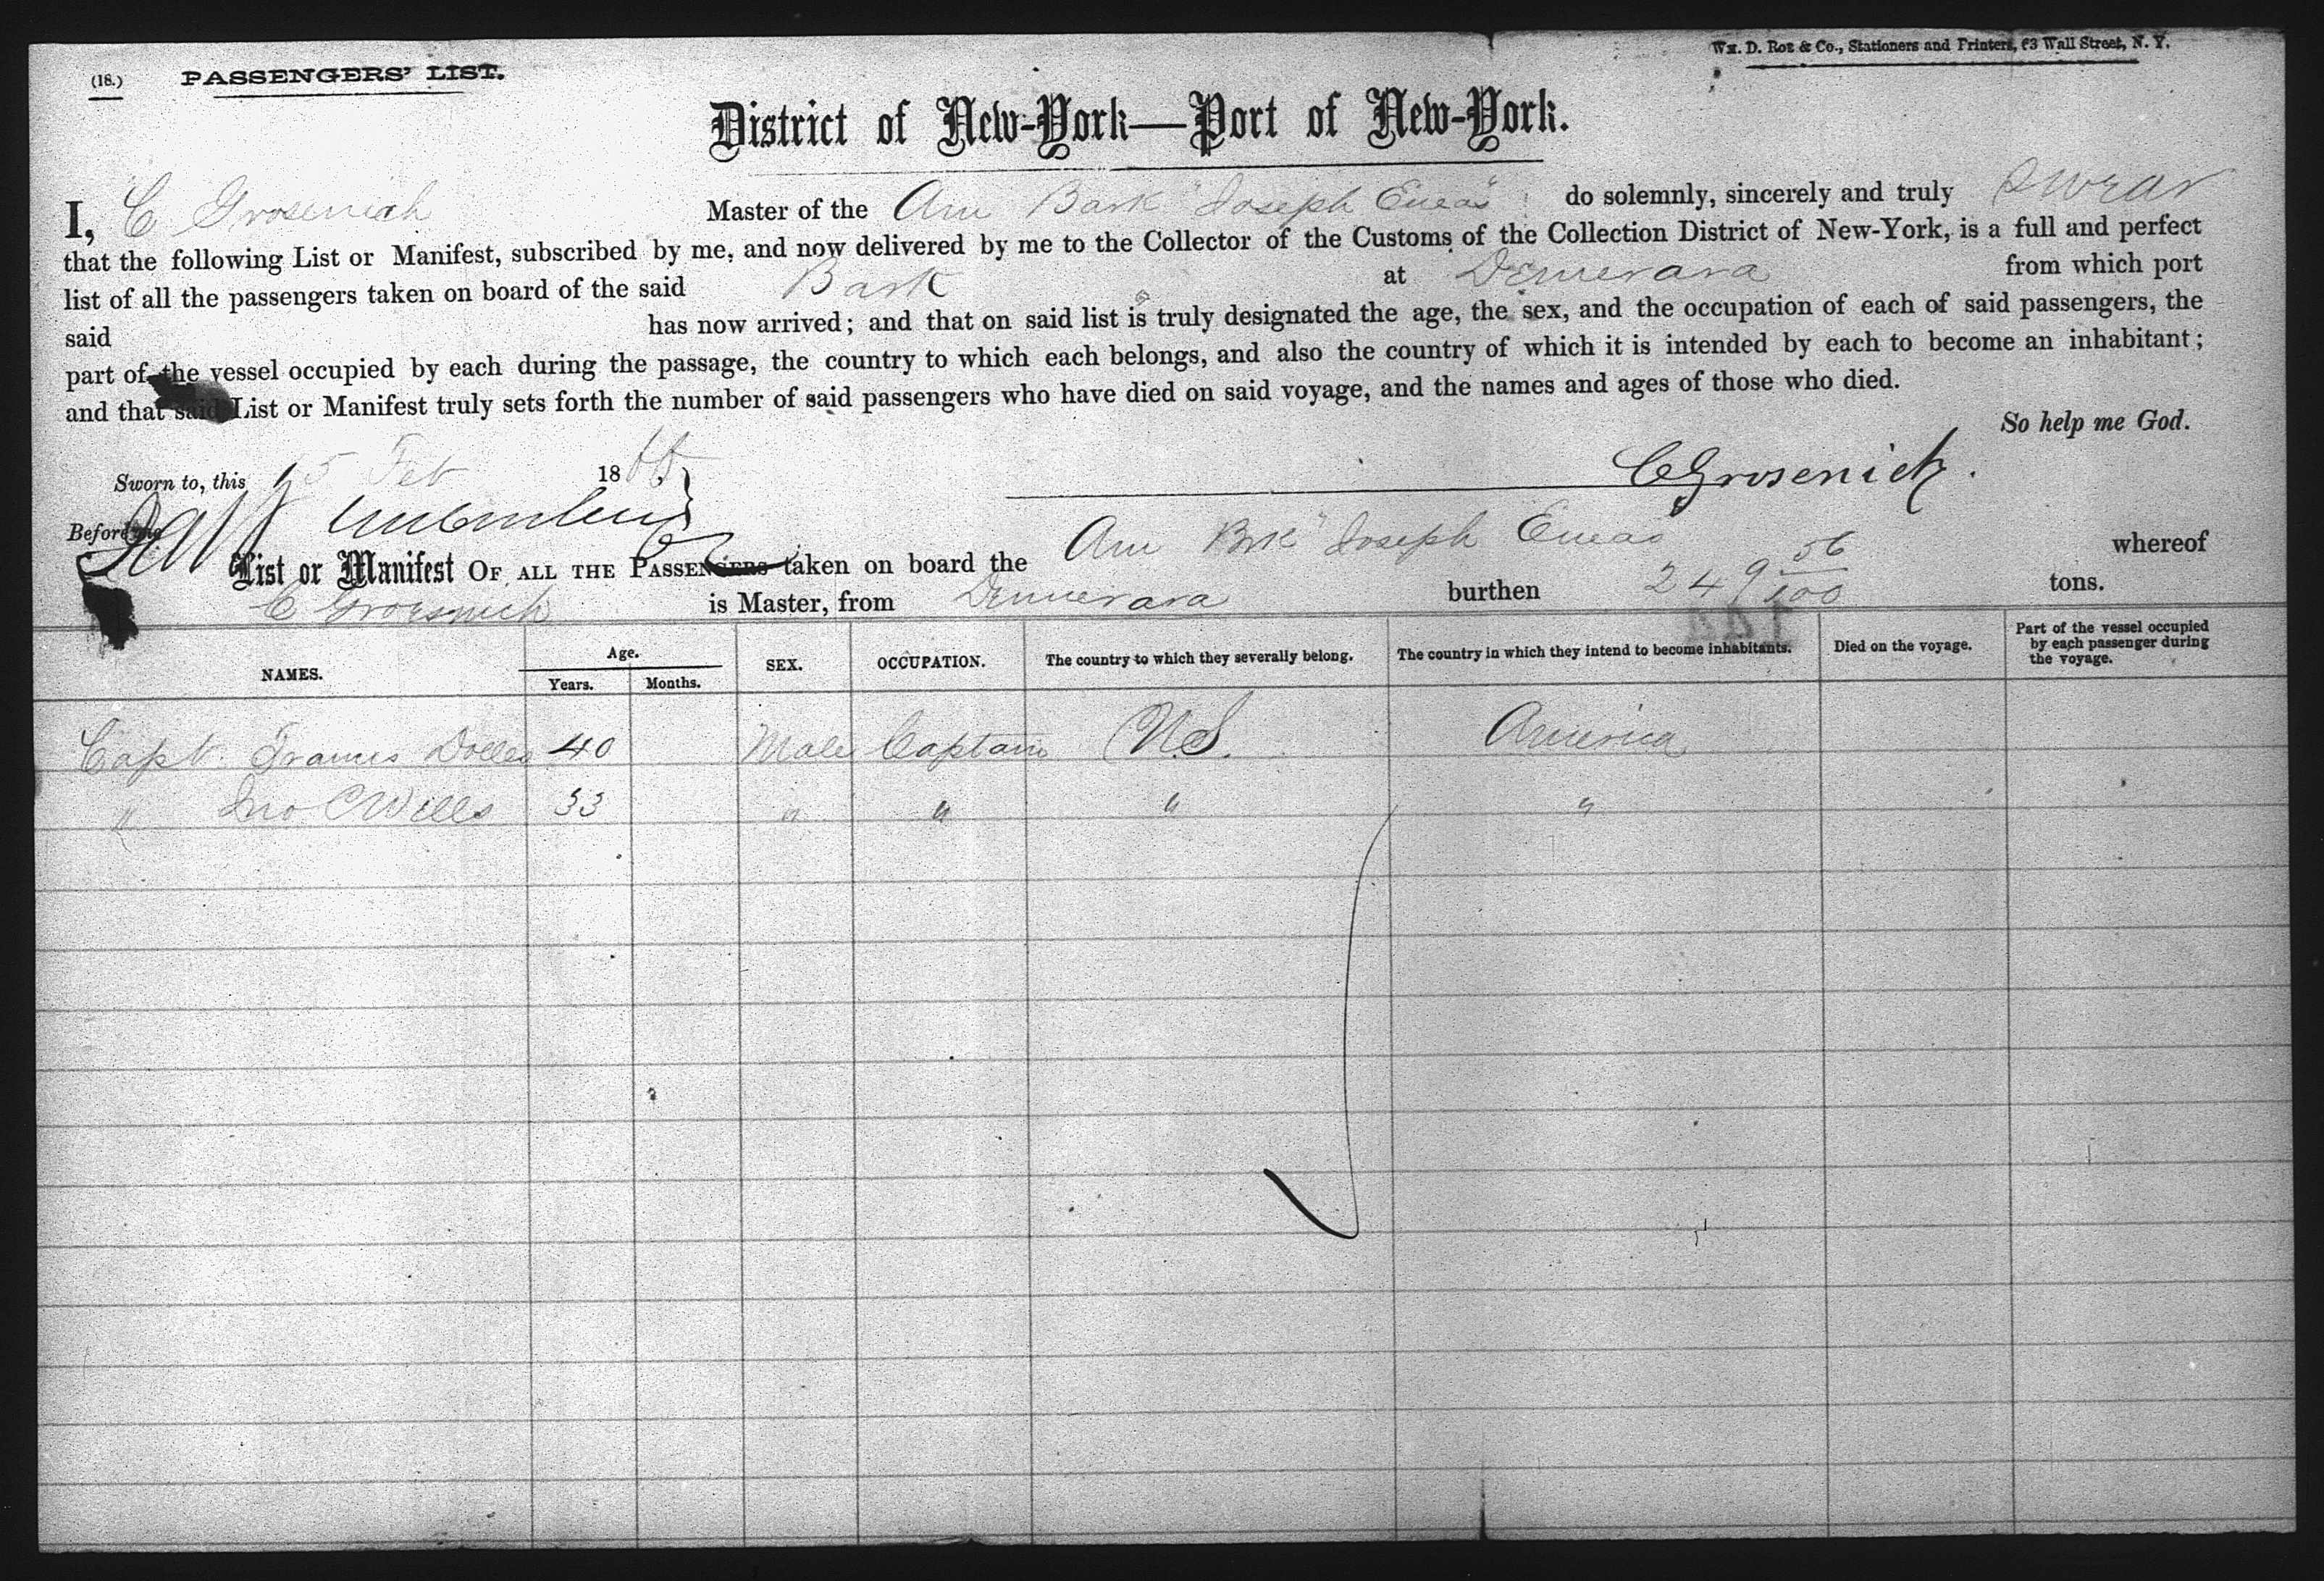 (18.) PASSENGERS' LIST.
Wm. D. Roe & Co., Stationers and Printers, 63 Wall Street, N. Y.
District of New-York—Port of New-York.
I, C Grosenick Master of the Am Bark "Joseph Eneas" do solemnly, sincerely and truly swear
that the following List or Manifest, subscribed by me, and now delivered by me to the Collector of the Customs of the Collection District of New-York, is a full and perfect
list of all the passengers taken on board of the said Bark at Demerara from which port
said has now arrived; and that on said list is truly designated the age, the sex, and the occupation of each of said passengers, the
part of the vessel occupied by each during the passage, the country to which each belongs, and also the country of which it is intended by each to become an inhabitant;
and that said List or Manifest truly sets forth the number of said passengers who have died on said voyage, and the names and ages of those who died.
So help me God.
Sworn to, this 15 Feb 18 CGrosenick.
Before me
List or Manifest OF ALL THE PASSENGERS taken on board the Am Brk "Joseph Eneas whereof
C Grosenick is Master, from Demerara burthen 249 56/100 tons.
NAMES. Age. Years. Months. SEX. OCCUPATION. The country to which they severally belong. The country in which they intend to become inhabitants. Died on the voyage. Part of the vessel occupied by each passenger during the voyage.
Capt. Francis 40 Male Captain U.S. America
" Jno C Wills 33 " " " "